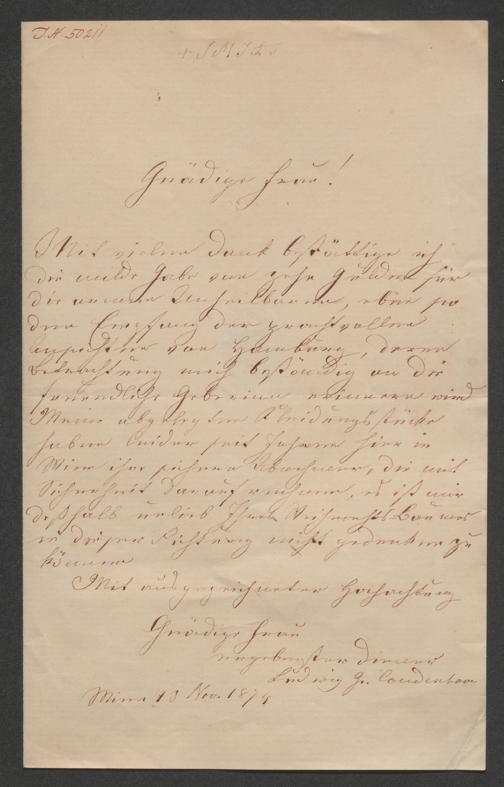 I.N. 50211
Gnädige Frau!
Mit vielem Dank bestättige ich
die milde Gabe von zehn Gulden für
die armen Unheilbaren, eben so
den Empfang der prachtvollen
Ansichten von Hamburg, deren
Betrachtung mich beständig an die
freundliche Geberinn erinnern wird
Meine abgelegten Kleidungsstücke
haben leider seit Jahren hier in
Wien ihre sichern Abnehmer, die mit
Sicherheit darauf rechnen, es ist mir
deßhalb unlieb Ihres Weihnachtsbaumes
in dieser Richtung nicht gedenken zu
können
Mit ausgezeichneter Hochachtung
Gnädige Frau
ergebenster Diener
Ludwig Gr. Coudenhove
Wien 13 Nov. 1874